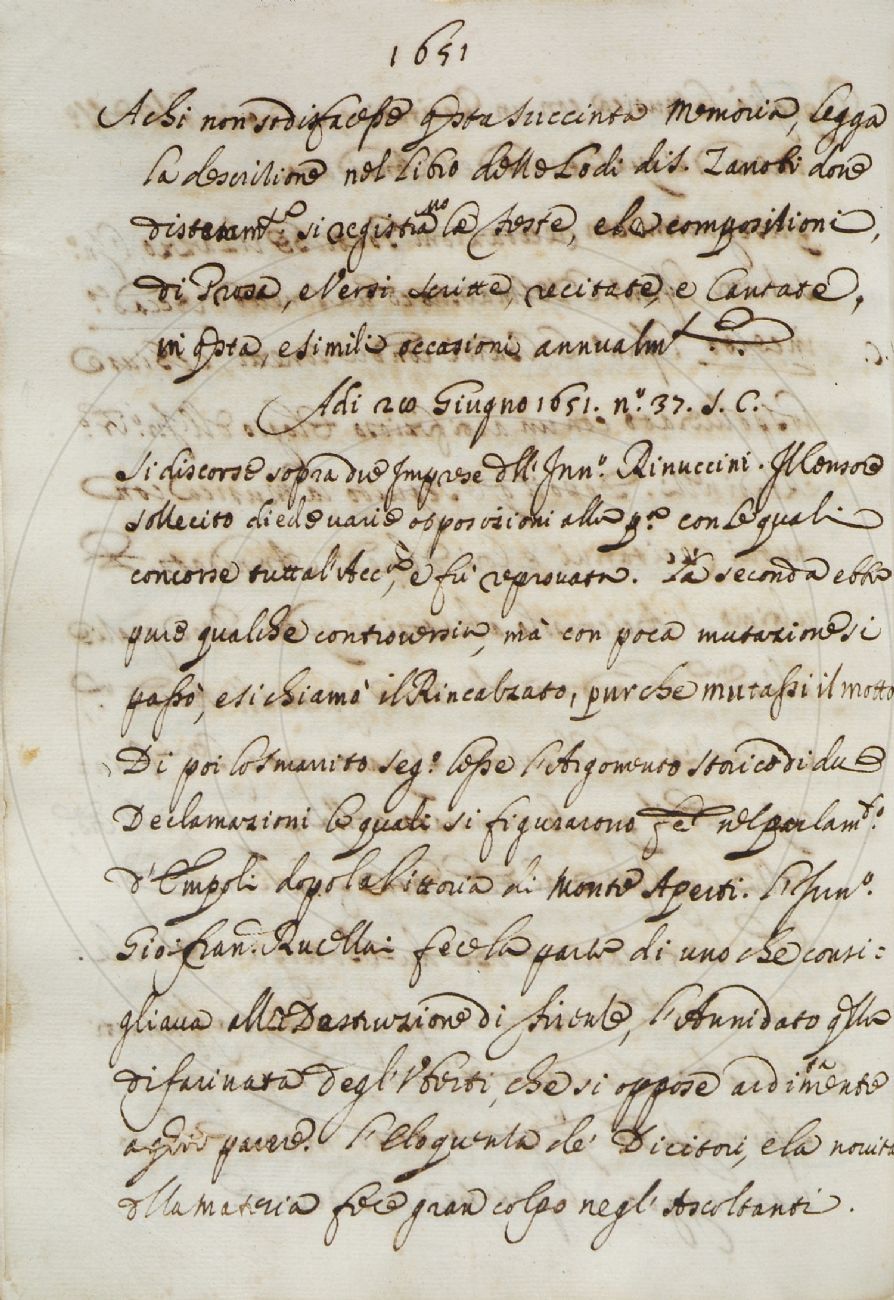 1651
A chi non sodisfacesse qsta succinta memoria, legga
la descrizione nel libro delle Lodi di S. Zanobi dove
distintamte. si registrano le feste, e le compositioni,
di Prosa, e Versi scritte, recitate, e Cantate,
in qsta, e simili occasioni annualmte.
Adi 20 Giugno 1651. no. 37. S. C.
Si discorse sopra due Imprese dll' Inno. Rinuccini. Il Censore
sollecito diede varie opposizioni alla pa. con le quali
concorse tutta l'Acc.a, e fù reprovata. La seconda ebbe
pure qualche controversia, mà con poca mutazione si
passò, e si chiamò il Rincalzato, purche mutassi il motto
Di poi lo Smarrito sego. lesse l'Argomento storico di due
Declamazioni le quali si figurarono nel parlamto.
d'Empoli dopo la Vittoria di Monte Aperti. l'Inno.
Gio: Fran. Rucellai fece la parte di uno che consi=
gliava alla Destruzione di Firenze, l'Annidato qlla
di Farinata degl' Uberti, che si oppose arditamente
a parere. l'Eloquenza de' Dicitori, e la novità
dlla materia fece gran colpo negl' Ascoltanti.